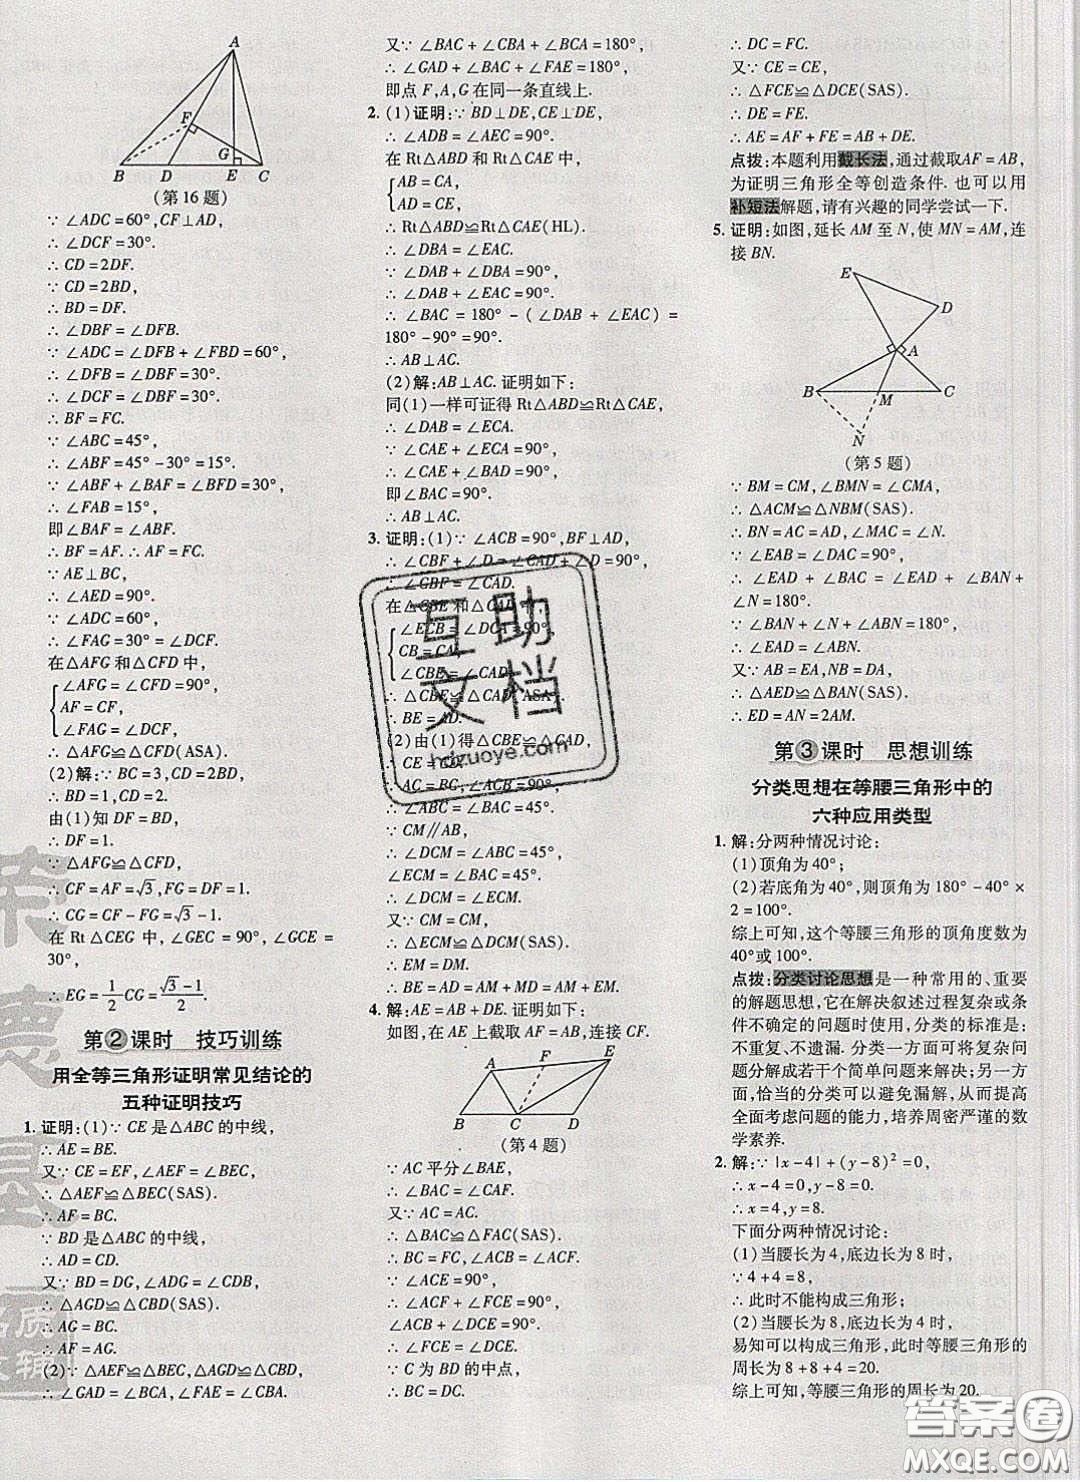 A
F
G
B D E C
(第16题)
∵∠ADC=60°,CF⊥AD,
∴∠DCF=30°.
∴CD=2DF.
∵CD=2BD,
∴BD=DF.
∴∠DBF=∠DFB.
∵∠ADC=∠DFB+∠FBD=60°,
∴∠DFB=∠DBF=30°.
∴∠DCF=∠DBF=30°.
∴BF=FC.
∵∠ABC=45°,
∴∠ABF=45°-30°=15°.
∵∠ABF+∠BAF=∠DFB=30°,
∴∠FAB=15°,
即∠BAF=∠ABF.
∴BF=AF.∴AF=FC.
∵AE⊥BC,
∴∠AED=90°.
∵∠ADC=60°,
∴∠FAG=30°=∠DCF.
在△AFG和△CFD中,
∠AFG=∠CFD=90°,
AF=CF,
∠FAG=∠DCF,
∴△AFG≌△CFD(ASA).
(2)解:∵BC=3,CD=2BD,
∴BD=1,CD=2.
由(1)知DF=BD,
∴DF=1.
∵△AFG≌△CFD,
∴CF=AF=√3,FG=DF=1.
∴CG=CF-FG=√3-1.
在Rt△CEG中,∠GEC=90°,∠GCE=
30°,
∴EG=1/2CG=(√3-1)/2.
第②课时 技巧训练
用全等三角形证明常见结论的
五种证明技巧
1.证明:(1)∵CE是△ABC的中线,
∴AE=BE.
又∵CE=EF,∠AEF=∠BEC,
∴△AEF≌△BEC(SAS).
∴AF=BC.
∵BD是△ABC的中线,
∴AD=CD.
又∵BD=DG,∠ADG=∠CDB,
∴△AGD≌△CBD(SAS).
∴AG=BC.
∴AF=AG.
(2)∵△AEF≌△BEC,△AGD≌△CBD,
∴∠GAD=∠BCA,∠FAE=∠CBA.
又∵∠BAC+∠CBA+∠BCA=180°,
∴∠GAD+∠BAC+∠FAE=180°,
即点F,A,G在同一条直线上.
2.(1)证明:∵BD⊥DE,CE⊥DE,
∴∠ADB=∠AEC=90°.
在Rt△ABD和Rt△CAE中,
AB=CA,
AD=CE,
∴Rt△ABD≌Rt△CAE(HL).
∴∠DBA=∠EAC.
∵∠DAB+∠DBA=90°,
∴∠DAB+∠EAC=90°.
∴∠BAC=180°-(∠DAB+∠EAC)=
180°-90°=90°.
∴AB⊥AC.
(2)解:AB⊥AC.证明如下:
同(1)一样可证得Rt△ABD≌Rt△CAE,
∴∠DAB=∠ECA.
∵∠CAE+∠ECA=90°,
∴∠CAE+∠DAB=90°,
即∠BAC=90°.
∴AB⊥AC.
3.证明:(1)∵∠ACB=90°,BF⊥AD,
∴∠CBF+∠D=∠CAD+∠D.
∴∠CBF=∠CAD.
在△CBE和△CAD中,
∠ECB=∠DCA=90°,
CB=CA,
∠CBE=∠CAD,
∴△CBE≌△CAD(ASA).
∴BE=AD.
(2)由(1)得△CBE≌△CAD,
∴CE=CD.
∵CM∥AB,
∴∠DCM=∠ABC=45°,
∠ECM=∠BAC=45°.
∴∠ECM=∠DCM.
又∵CM=CM,
∴△ECM≌△DCM(SAS).
∴EM=DM.
∴BE=AD=AM+MD=AM+EM.
4.解:AE=AB+DE.证明如下:
如图,在AE上截取AF=AB,连接CF.
F E
A
B C D
(第4题)
∵AC平分∠BAE,
∴∠BAC=∠CAF.
又∵AC=AC,
∴△BAC≌△FAC(SAS).
∴BC=FC,∠ACB=∠ACF.
∵∠ACE=90°,
∴∠ACF+∠FCE=90°,
∠ACB+∠DCE=90°.
∴∠FCE=∠DCE.
∵C为BD的中点,
∴BC=DC.
∴DC=FC.
又∵CE=CE,
∴△FCE≌△DCE(SAS).
∴DE=FE.
∴AE=AF+FE=AB+DE.
点拨:本题利用截长法,通过截取AF=AB,
为证明三角形全等创造条件.也可以用
补短法解题,请有兴趣的同学尝试一下.
5.证明:如图,延长AM至N,使MN=AM,连
接BN.
E
D
A
B M C
N
(第5题)
∵BM=CM,∠BMN=∠CMA,
∴△ACM≌△NBM(SAS).
∴BN=AC=AD,∠MAC=∠N.
∵∠EAB=∠DAC=90°,
∴∠EAD+∠BAC=∠EAD+∠BAN+
∠N=180°.
∵∠BAN+∠N+∠ABN=180°,
∴∠EAD=∠ABN.
又∵AB=EA,NB=DA,
∴△AED≌△BAN(SAS).
∴ED=AN=2AM.
第③课时 思想训练
分类思想在等腰三角形中的
六种应用类型
1.解:分两种情况讨论:
(1)顶角为40°;
(2)若底角为40°,则顶角为180°-40°×
2=100°.
综上可知,这个等腰三角形的顶角度数为
40°或100°.
点拨:分类讨论思想是一种常用的、重要
的解题思想,它在解决叙述过程复杂或条
件不定的问题时使用,分类的标准是:
不重复、不遗漏.分类一方面可将复杂的
问题分解成若干个简单问题来解决;另一方
面,恰当的分类可以避免漏解,从而提高
全面考虑问题的能力,培养周密严谨的数
学素养.
2.解:∵|x-4|+(y-8)²=0,
∴x-4=0,y-8=0.
∴x=4,y=8.
下面分两种情况讨论:
(1)当腰长为4,底边长为8时,
∵4+4=8,
∴此时不能构成三角形;
(2)当腰长为8,底边长为4时,
易知可以构成三角形,此时等腰三角形的
周长为8+8+4=20.
综上可知,等腰三角形的周长为20.
互助
文档
hdzuoye.com
答案圈
MXQE.COM
德
基